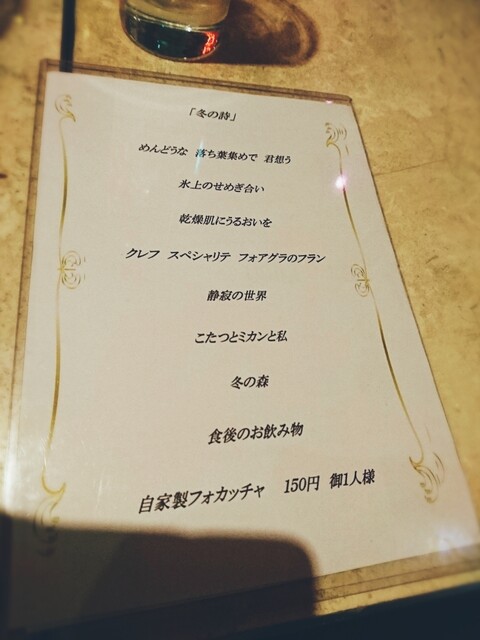 「冬の詩」
めんどうな 落ち葉集めで 君想う
氷上のせめぎ合い
乾燥肌にうるおいを
クレフ スペシャリテ フォアグラのフラン
静寂の世界
こたつとミカンと私
冬の森
食後のお飲み物
自家製フォカッチャ 150円 御1人様